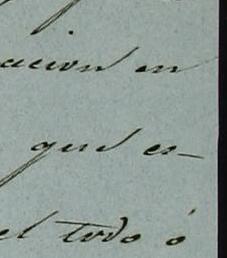 acion en
que es-
el todo ó